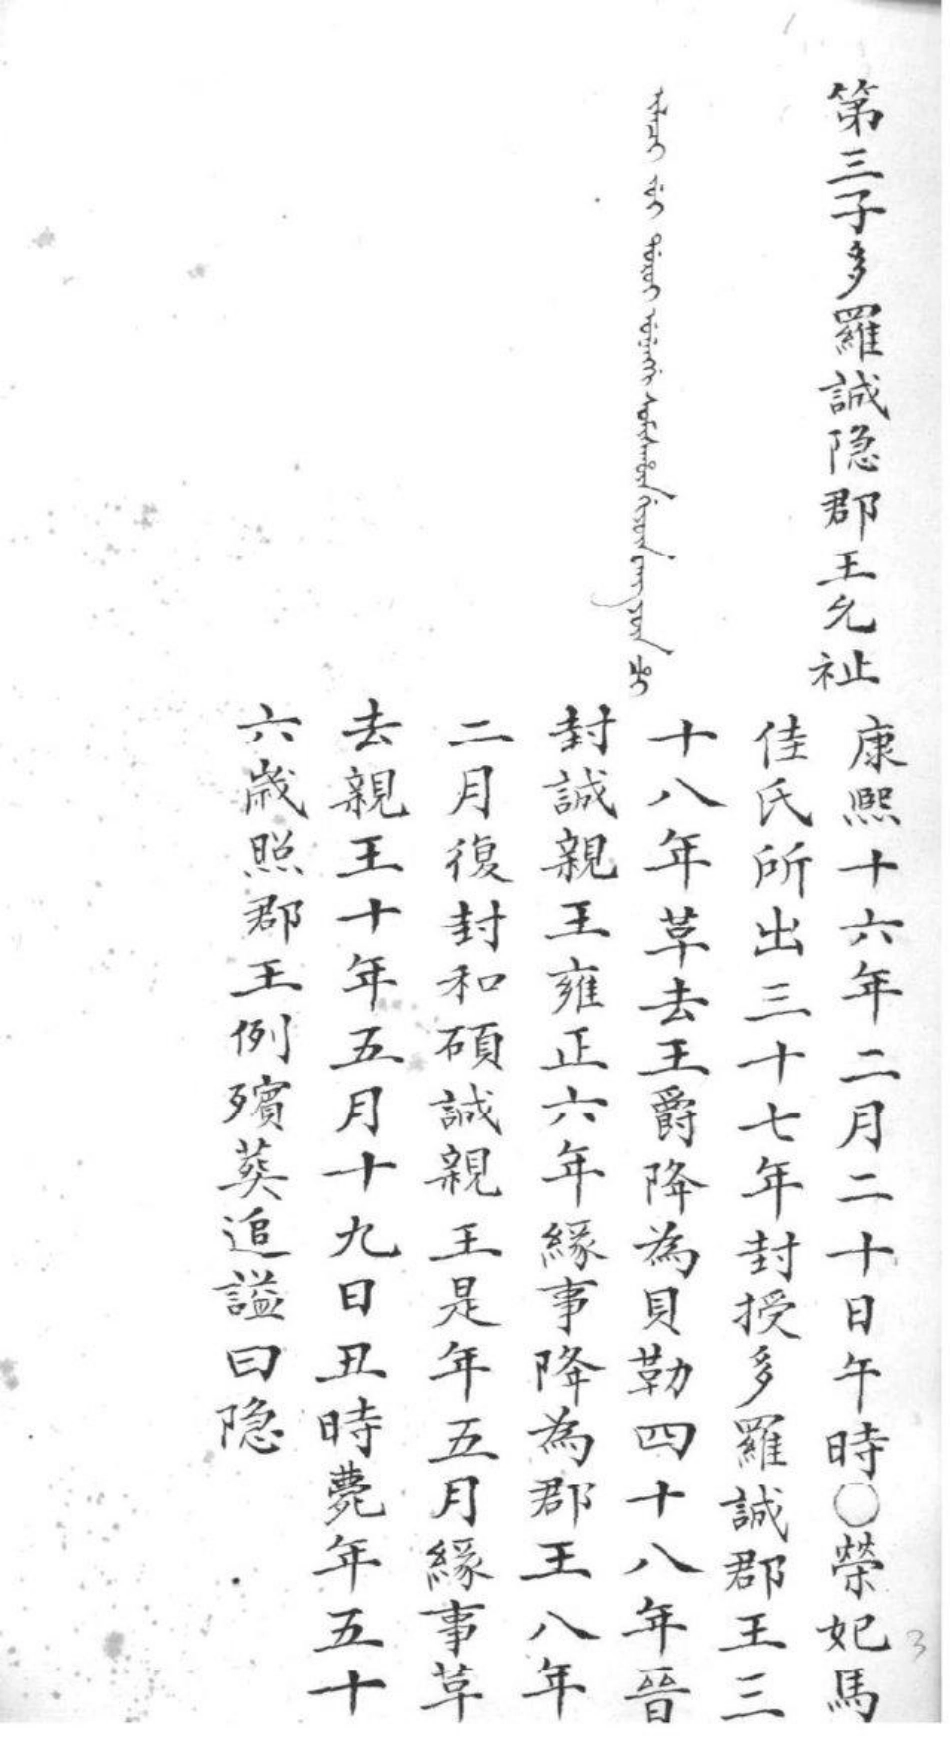 第三子多羅誠隐郡王允祉
康熙十六年二月二十日午時○榮妃馬
佳氏所出三十七年封授多羅誠郡王三
十八年草去王爵降為貝勒四十八年晉
封誠親王雍正六年緣事降為郡王八年
二月復封和碩誠親王是年五月緣事草
去親王十年五月十九日丑時薨年五十
六歲照郡王例殯葬追謚曰隐
3